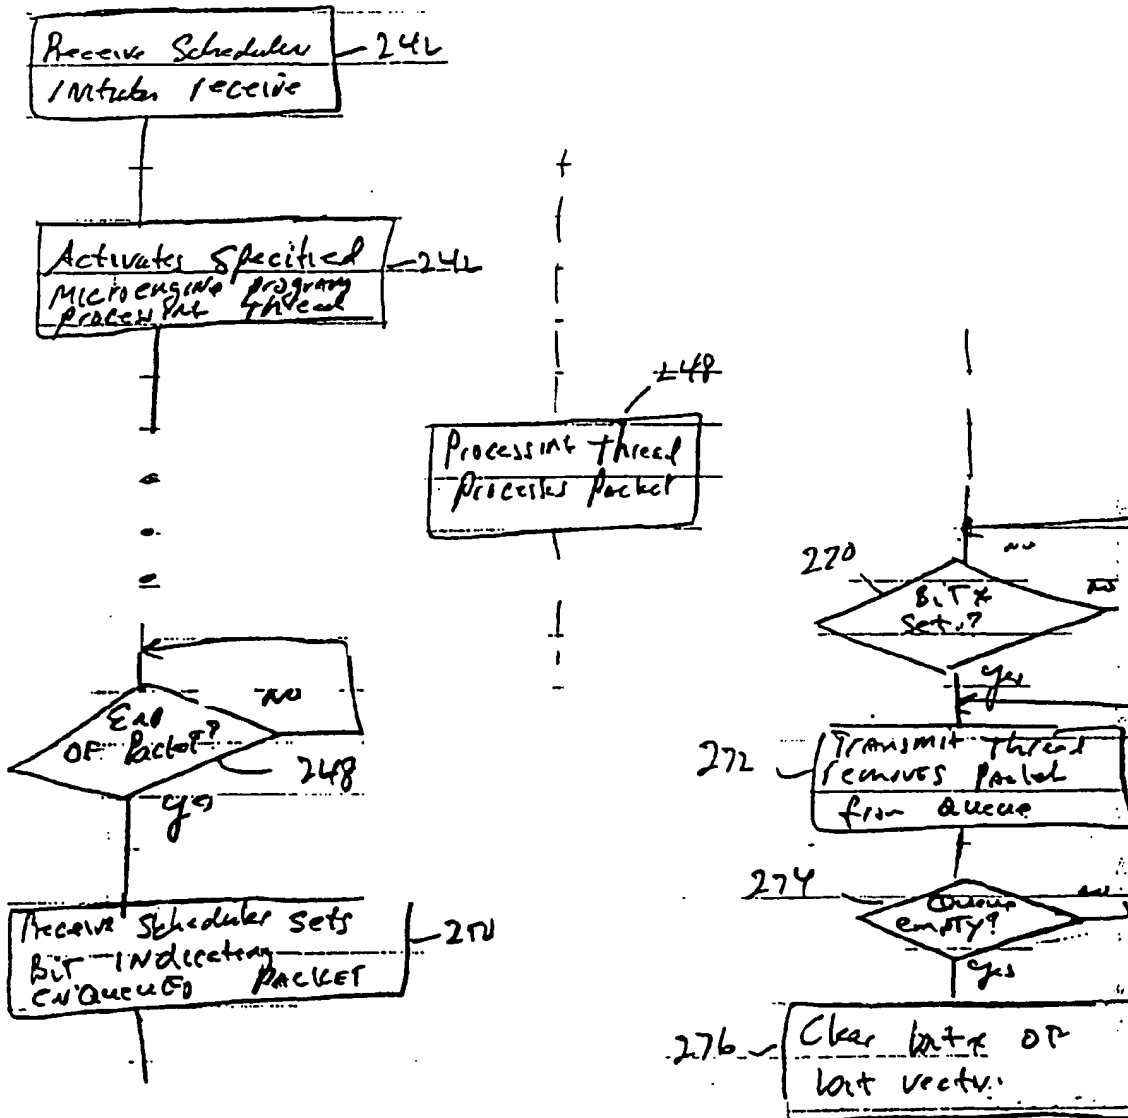 Receive Scheduler
Initiates receive
242
Activates Specified
Microengine program
processing thread
242
248
Processing thread
Processes packet
End
OF Packet?
NO
248
yes
Receive Scheduler Sets
BiT INdicating
ENQUEUED PACKET
250
no
270
BiT x
Set?
no
yes
272
TRANSMIT thread
removes packet
from Queue
274
Queue
empty?
no
yes
276
Clear bit x OF
bit vector